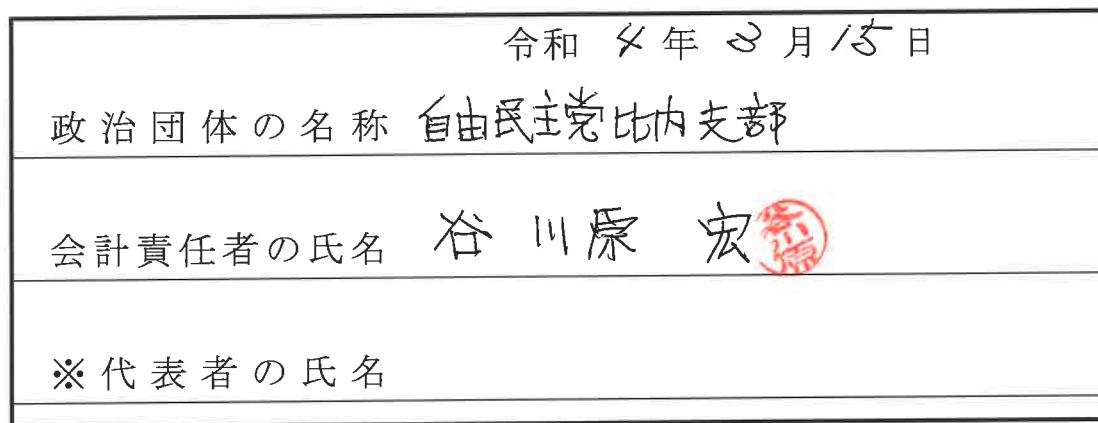 令和 4年 3月15日
政治団体の名称 自由民主党比内支部
会計責任者の氏名 谷川原 宏
※代表者の氏名